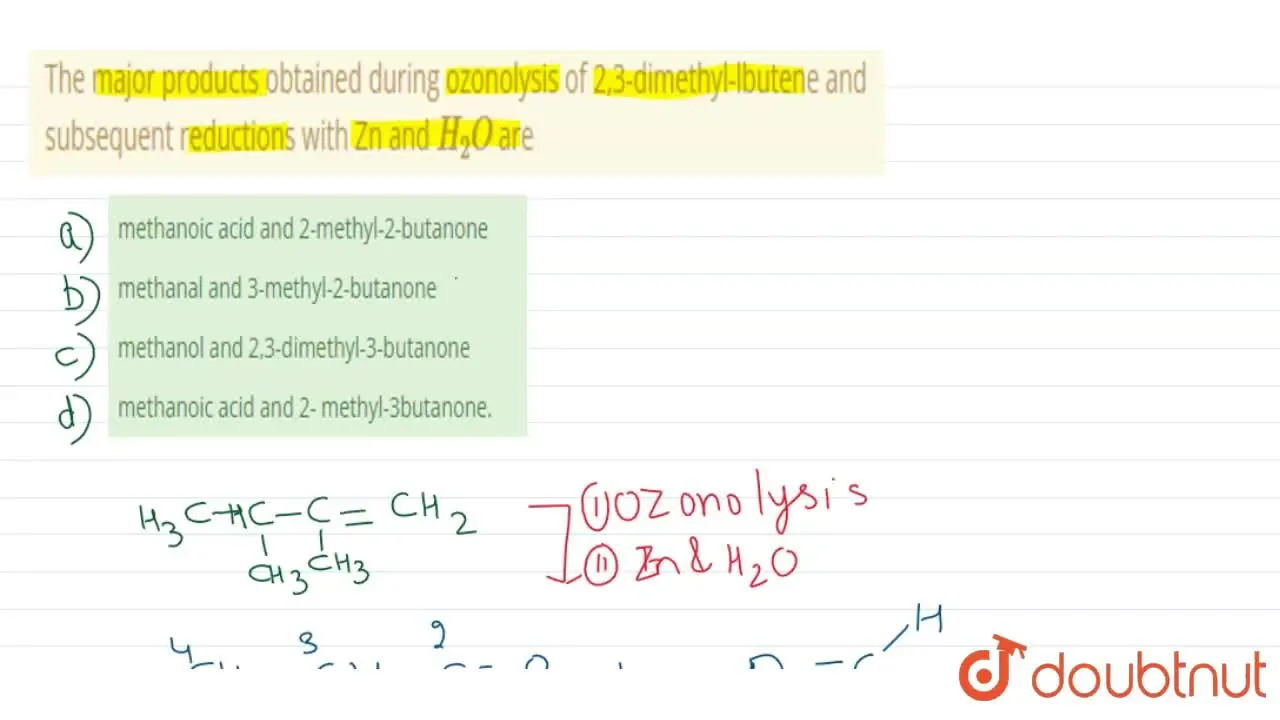 The major products obtained during ozonolysis of 2,3-dimethyl-lbutene and
subsequent reductions with Zn and H₂O are
a) methanoic acid and 2-methyl-2-butanone
b) methanal and 3-methyl-2-butanone
c) methanol and 2,3-dimethyl-3-butanone
d) methanoic acid and 2- methyl-3butanone.
H₃C-HC-C=CH₂
CH₃ CH₃
(I) Ozonolysis
(II) Zn & H₂O
4 3 2 H
doubtnut